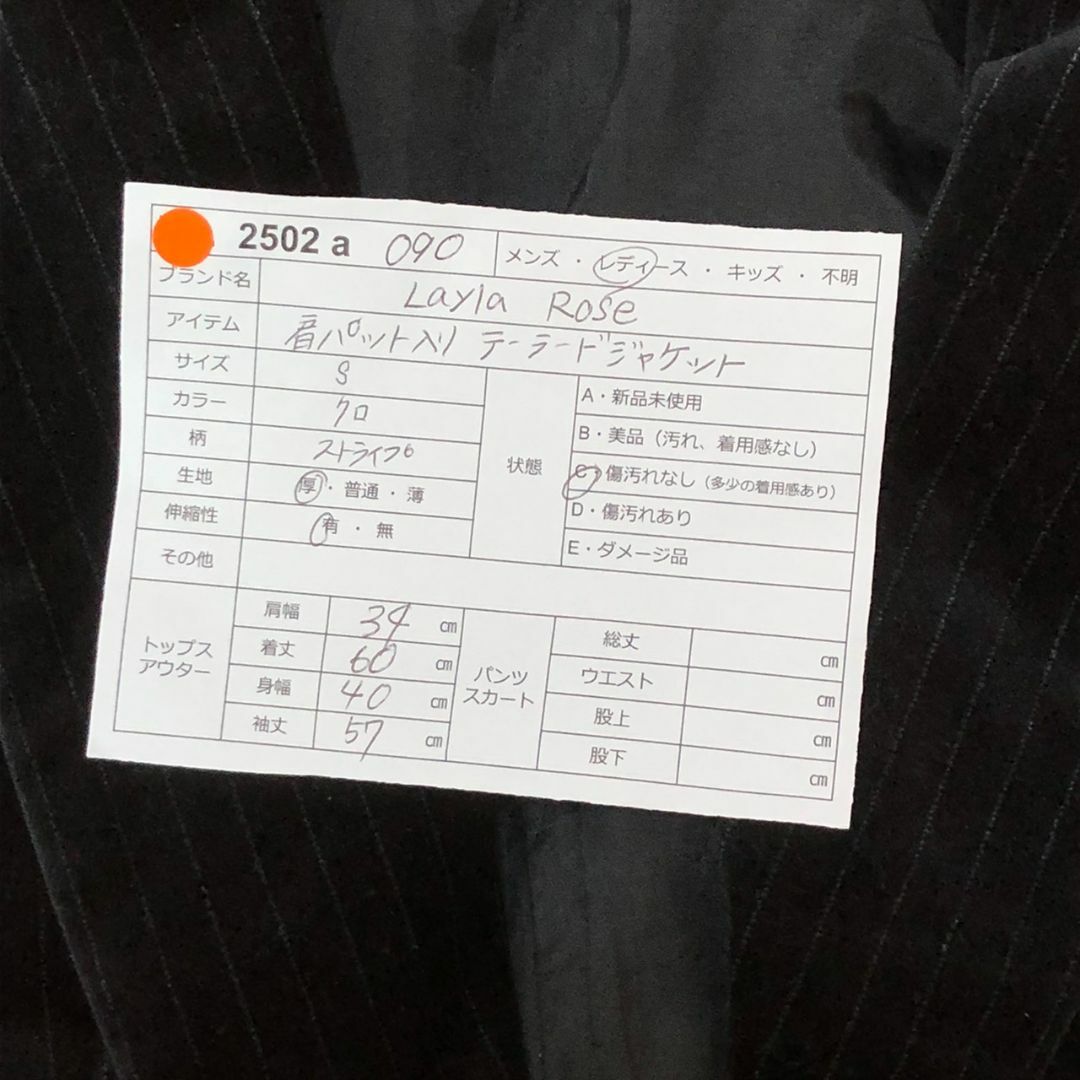 2502 a 090 メンズ ・ レディース ・ キッズ ・ 不明
ブランド名 Layla Rose
アイテム 肩パット入り テーラードジャケット
サイズ S
カラー クロ
柄 ストライプ
生地 厚 ・ 普通 ・ 薄
伸縮性 有 ・ 無
その他
状態
A・新品未使用
B・美品（汚れ、着用感なし）
C・傷汚れなし（多少の着用感あり）
D・傷汚れあり
E・ダメージ品
トップス
アウター
肩幅 34 ㎝
着丈 60 ㎝
身幅 40 ㎝
袖丈 57 ㎝
パンツ
スカート
総丈 ㎝
ウエスト ㎝
股上 ㎝
股下 ㎝